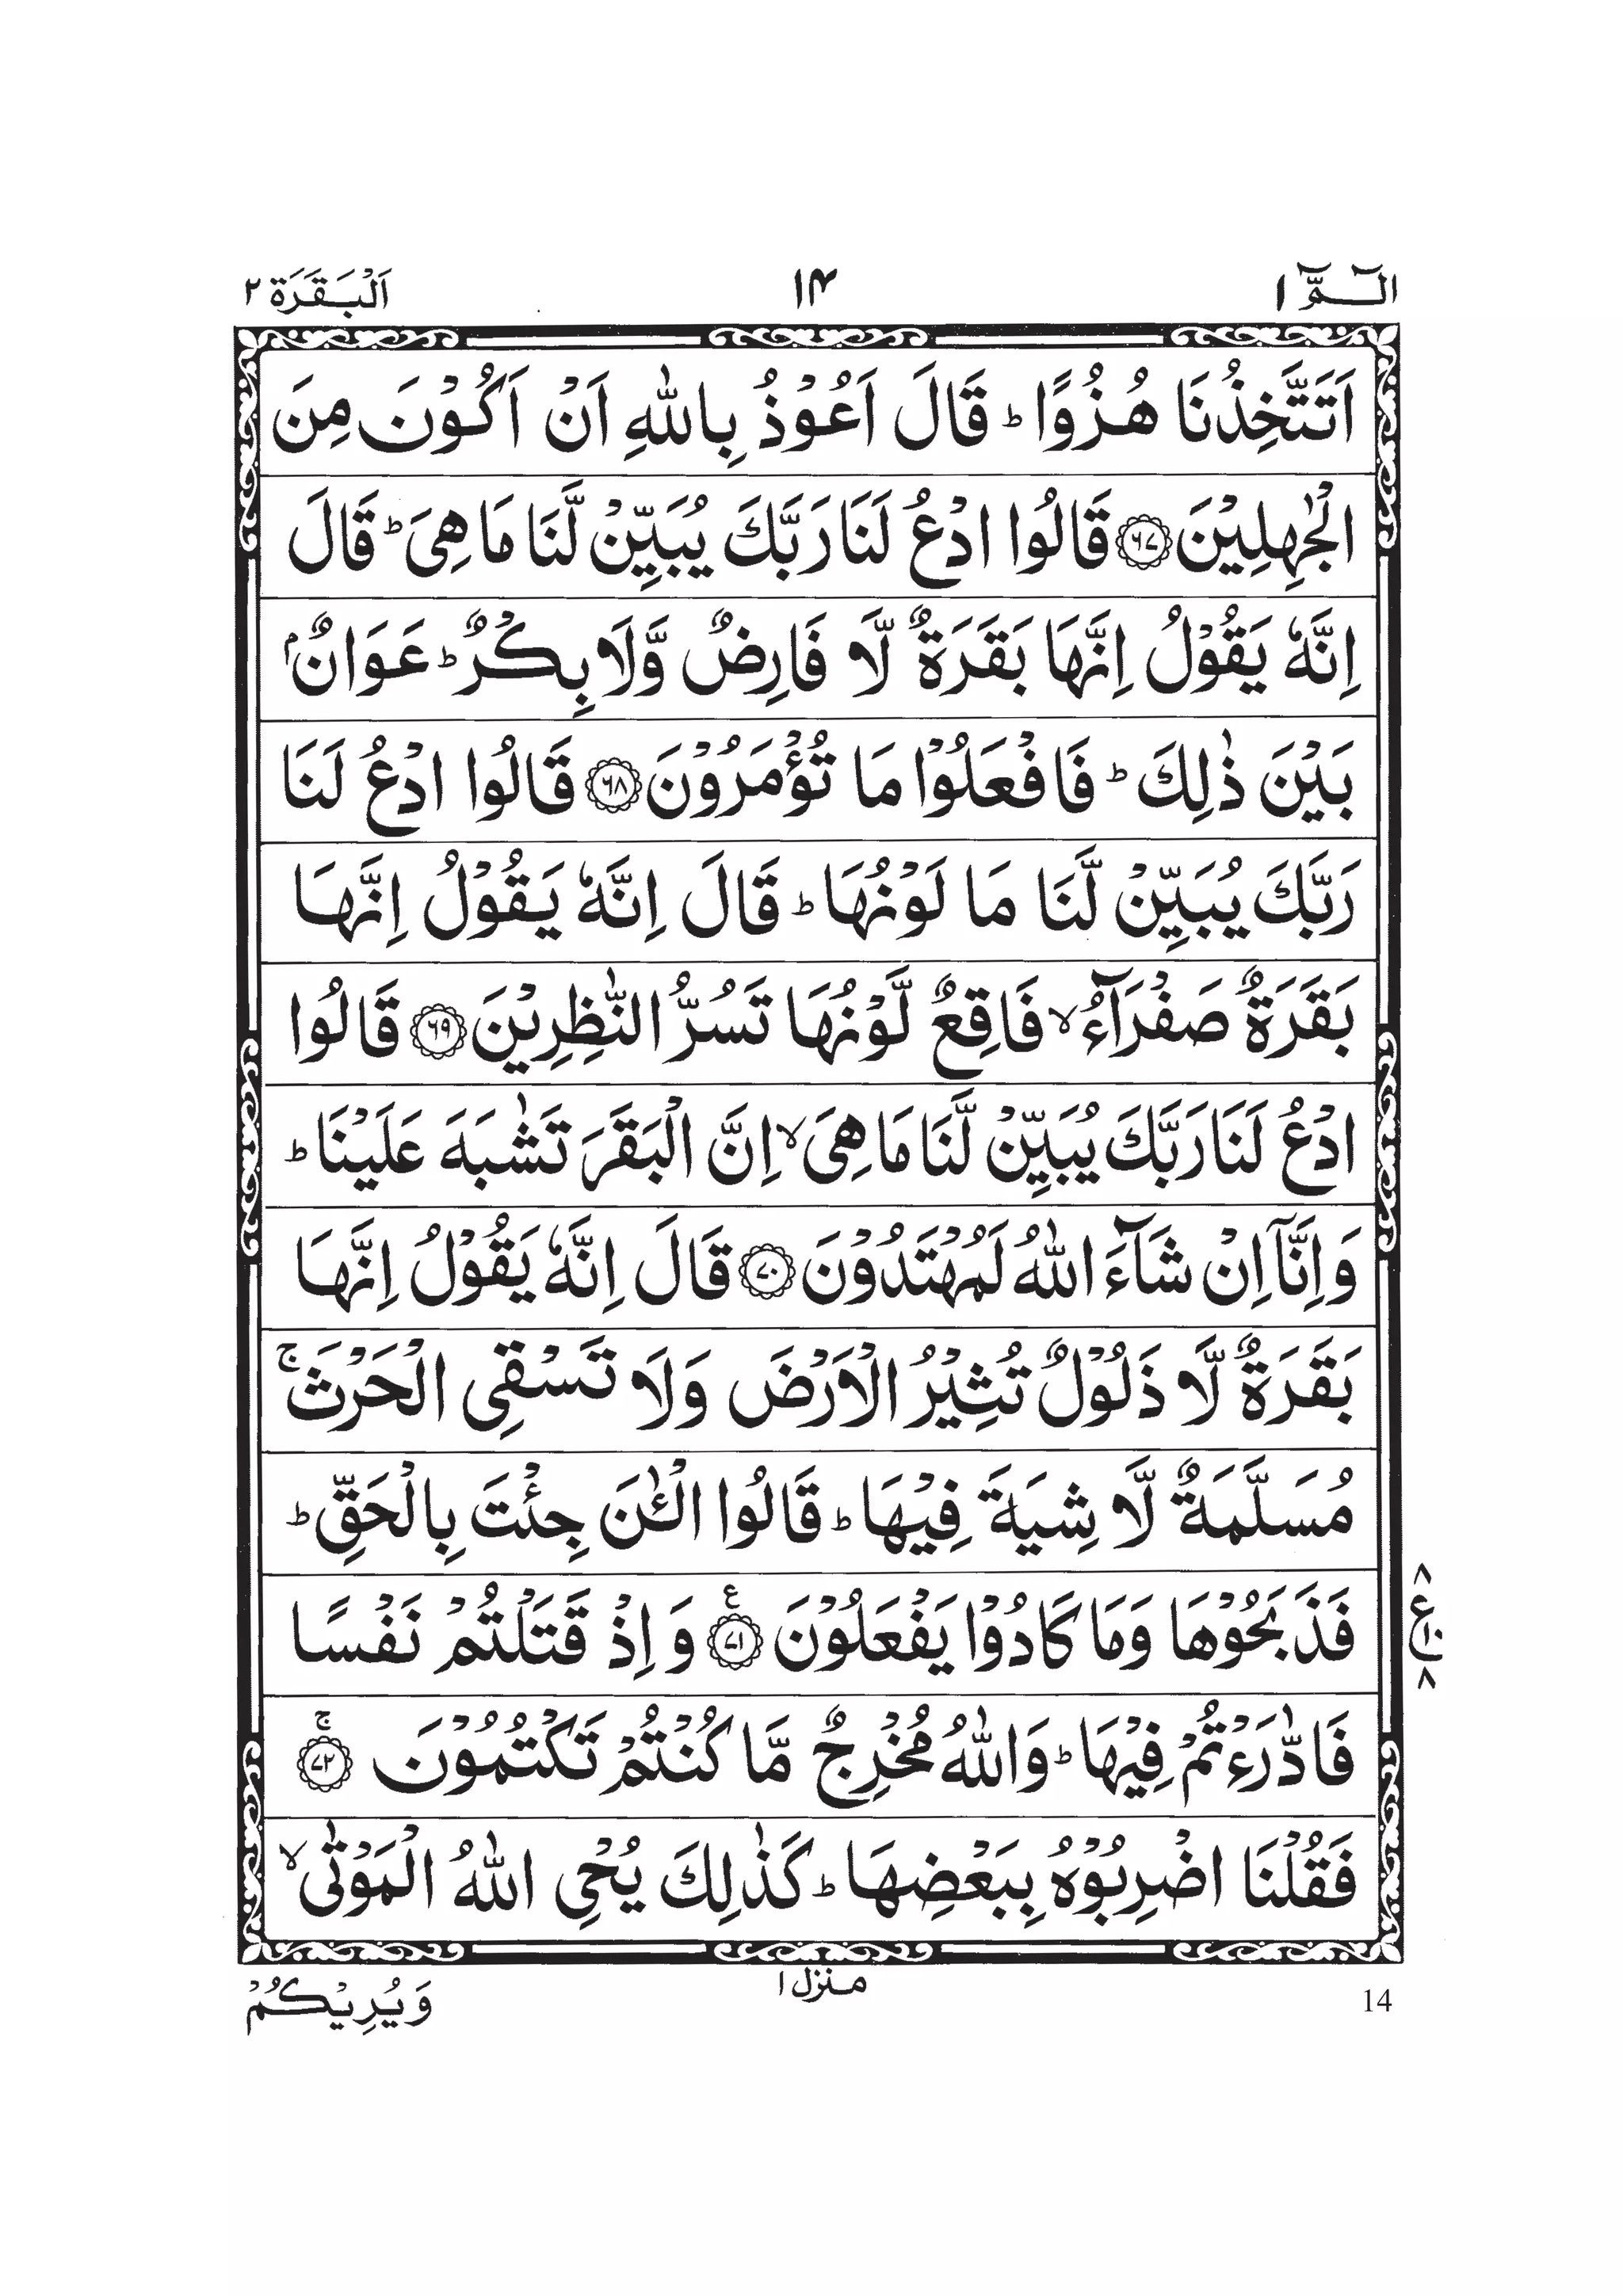 الٓـمّٓ ١
١۴
اَلْبَـقَـرَة ٢
اَتَتَّخِذُنَا هُـزُوًا ؕ قَالَ اَعُوْذُ بِاللّٰهِ اَنْ اَكُوْنَ مِنَ
الْجٰهِلِيْنَ ﴿۶۷﴾ قَالُوا ادْعُ لَنَا رَبَّكَ يُبَيِّنْ لَّنَا مَا هِىَ ؕ قَالَ
اِنَّهٗ يَقُوْلُ اِنَّهَا بَقَرَةٌ لَّا فَارِضٌ وَّلَا بِكْرٌ ؕ عَوَانٌۢ
بَيْنَ ذٰلِكَ ؕ فَافْعَلُوْا مَا تُؤْمَرُوْنَ ﴿۶۸﴾ قَالُوا ادْعُ لَنَا
رَبَّكَ يُبَيِّنْ لَّنَا مَا لَوْنُهَا ؕ قَالَ اِنَّهٗ يَقُوْلُ اِنَّهَا
بَقَرَةٌ صَفْرَآءُ ۙ فَاقِعٌ لَّوْنُهَا تَسُرُّ النّٰظِرِيْنَ ﴿۶۹﴾ قَالُوا
ادْعُ لَنَا رَبَّكَ يُبَيِّنْ لَّنَا مَا هِىَ ۙ اِنَّ الْبَقَرَ تَشٰبَهَ عَلَيْنَا ؕ
وَاِنَّاۤ اِنْ شَآءَ اللّٰهُ لَمُهْتَدُوْنَ ﴿۷۰﴾ قَالَ اِنَّهٗ يَقُوْلُ اِنَّهَا
بَقَرَةٌ لَّا ذَلُوْلٌ تُثِيْرُ الْاَرْضَ وَلَا تَسْقِى الْحَرْثَ ۚ
مُسَلَّمَةٌ لَّا شِيَةَ فِيْهَا ؕ قَالُوا الْـٰٔنَ جِئْتَ بِالْحَقِّ ؕ
فَذَبَحُوْهَا وَمَا كَادُوْا يَفْعَلُوْنَ ﴿۷۱﴾ ع وَ اِذْ قَتَلْتُمْ نَفْسًا
٨ ع ١٠ ٨
فَادّٰرَءْتُمْ فِيْهَا ؕ وَاللّٰهُ مُخْرِجٌ مَّا كُنْتُمْ تَكْتُمُوْنَ ﴿۷۲﴾ ۚ
فَقُلْنَا اضْرِبُوْهُ بِبَعْضِهَا ؕ كَذٰلِكَ يُحْىِ اللّٰهُ الْمَوْتٰى ۙ
14
منزل ١
وَيُرِيْكُمْ